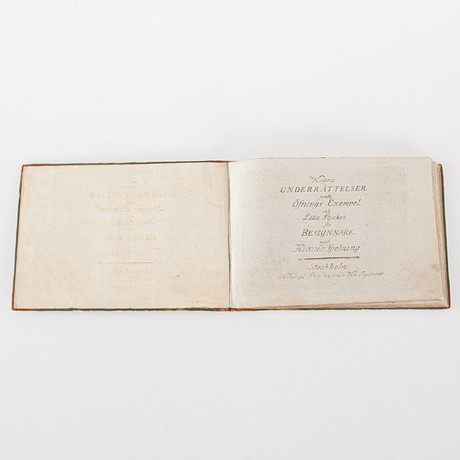 Några
UNDERRÄTTELSER
jemte
Öfnings Exempel
och
Lätta Stycken
för
BEGYNNARE
uti
Klaver Spelning
Stockholm